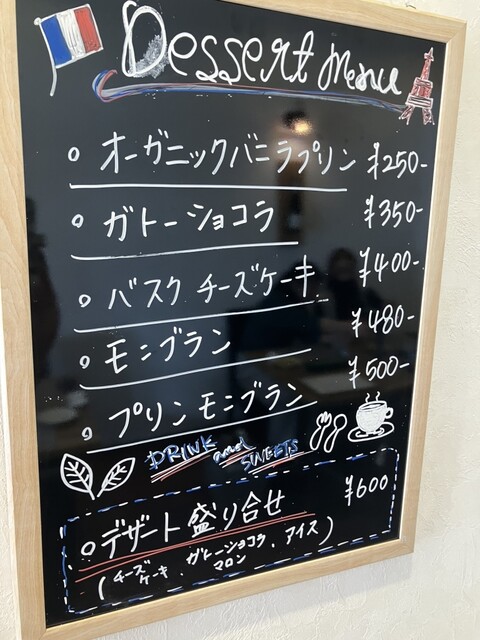 Dessert Menu
○ オーガニックバニラプリン ¥250-
○ ガトーショコラ ¥350-
○ バスク チーズケーキ ¥400-
○ モンブラン ¥480-
○ プリン モンブラン ¥500-
DRINK and SWEETS
○ デザート盛り合せ ¥600
(チーズケーキ、ガトーショコラ、アイス)
マロン